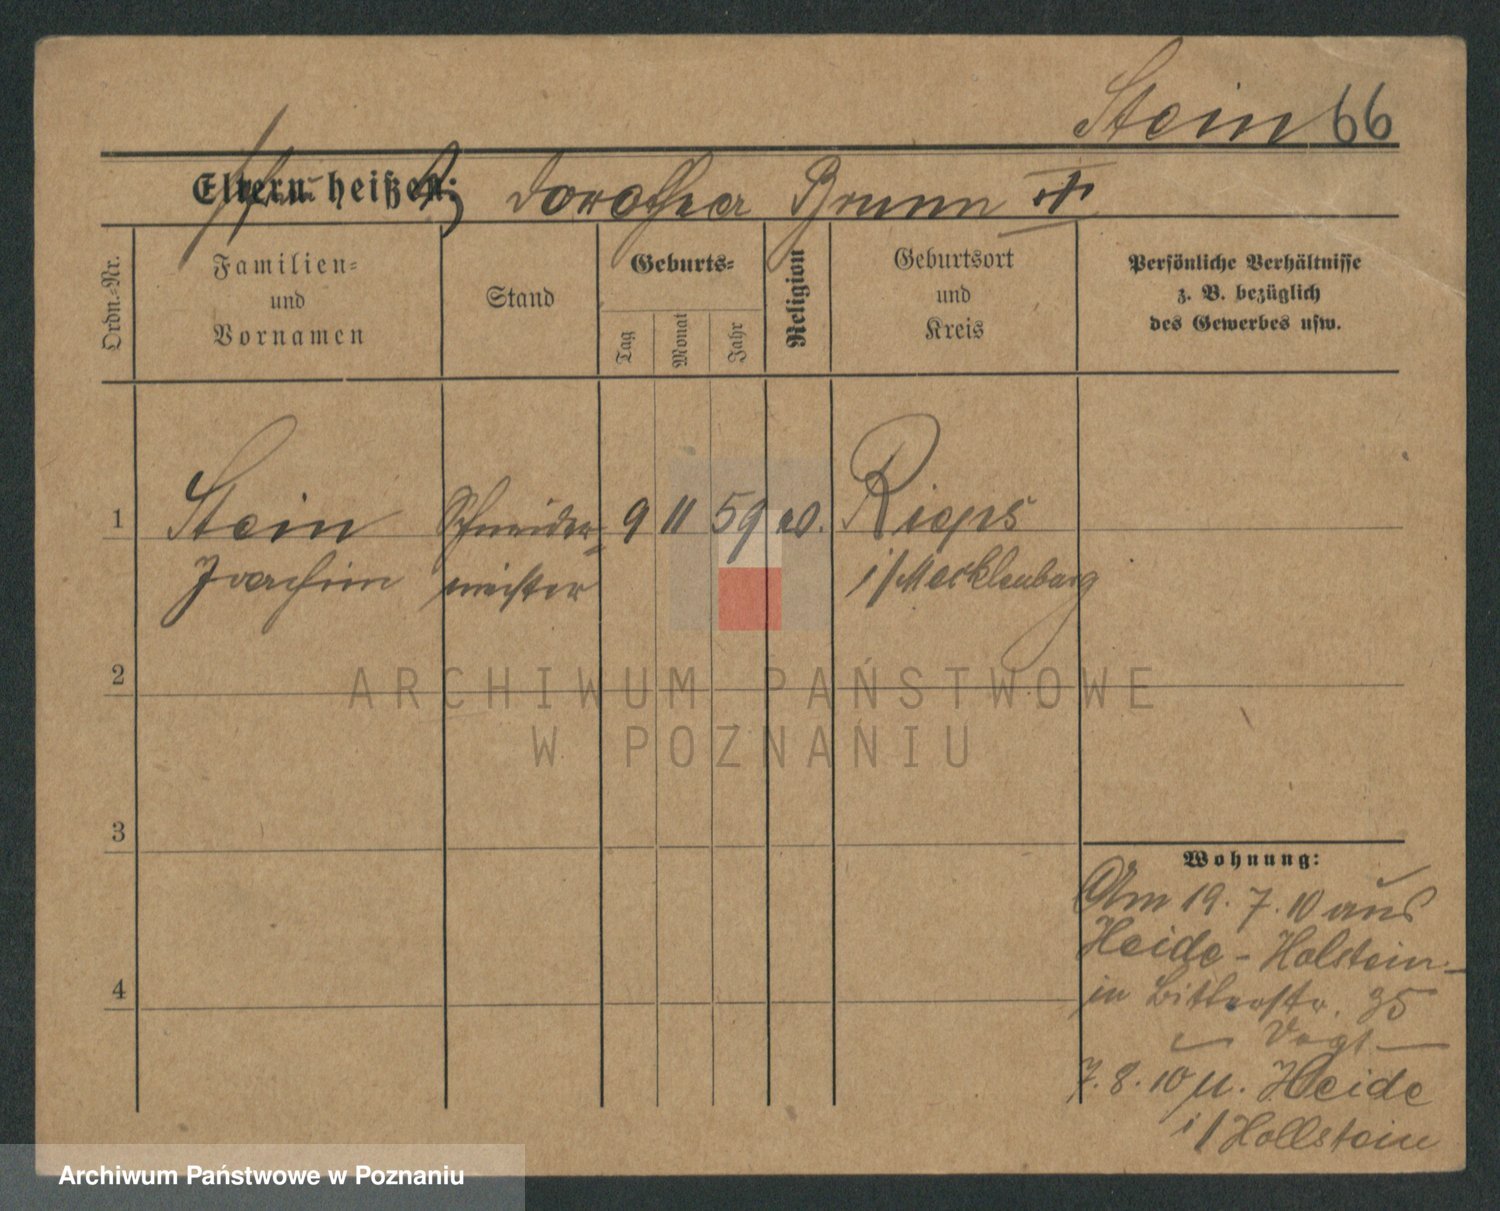 Stein 66
Eltern heißen: Dorothea Brumm
Ordn.-Nr.
Familien-
und
Vornamen
Stand
Geburts-
Tag
Monat
Jahr
Religion
Geburtsort
und
Kreis
Persönliche Verhältnisse
z. B. bezüglich
des Gewerbes usw.
1 Stein Schneider- 9 11 59 ev. Rieps
Joachim meister i/Mecklenburg
2
3
4
Wohnung:
Am 19. 7. 10 aus
Heide - Holstein -
in Bitterstr. 35
Vogt
7. 8. 10 n. Heide
i/Hollstein
ARCHIWUM PAŃSTWOWE
W POZNANIU
Archiwum Państwowe w Poznaniu